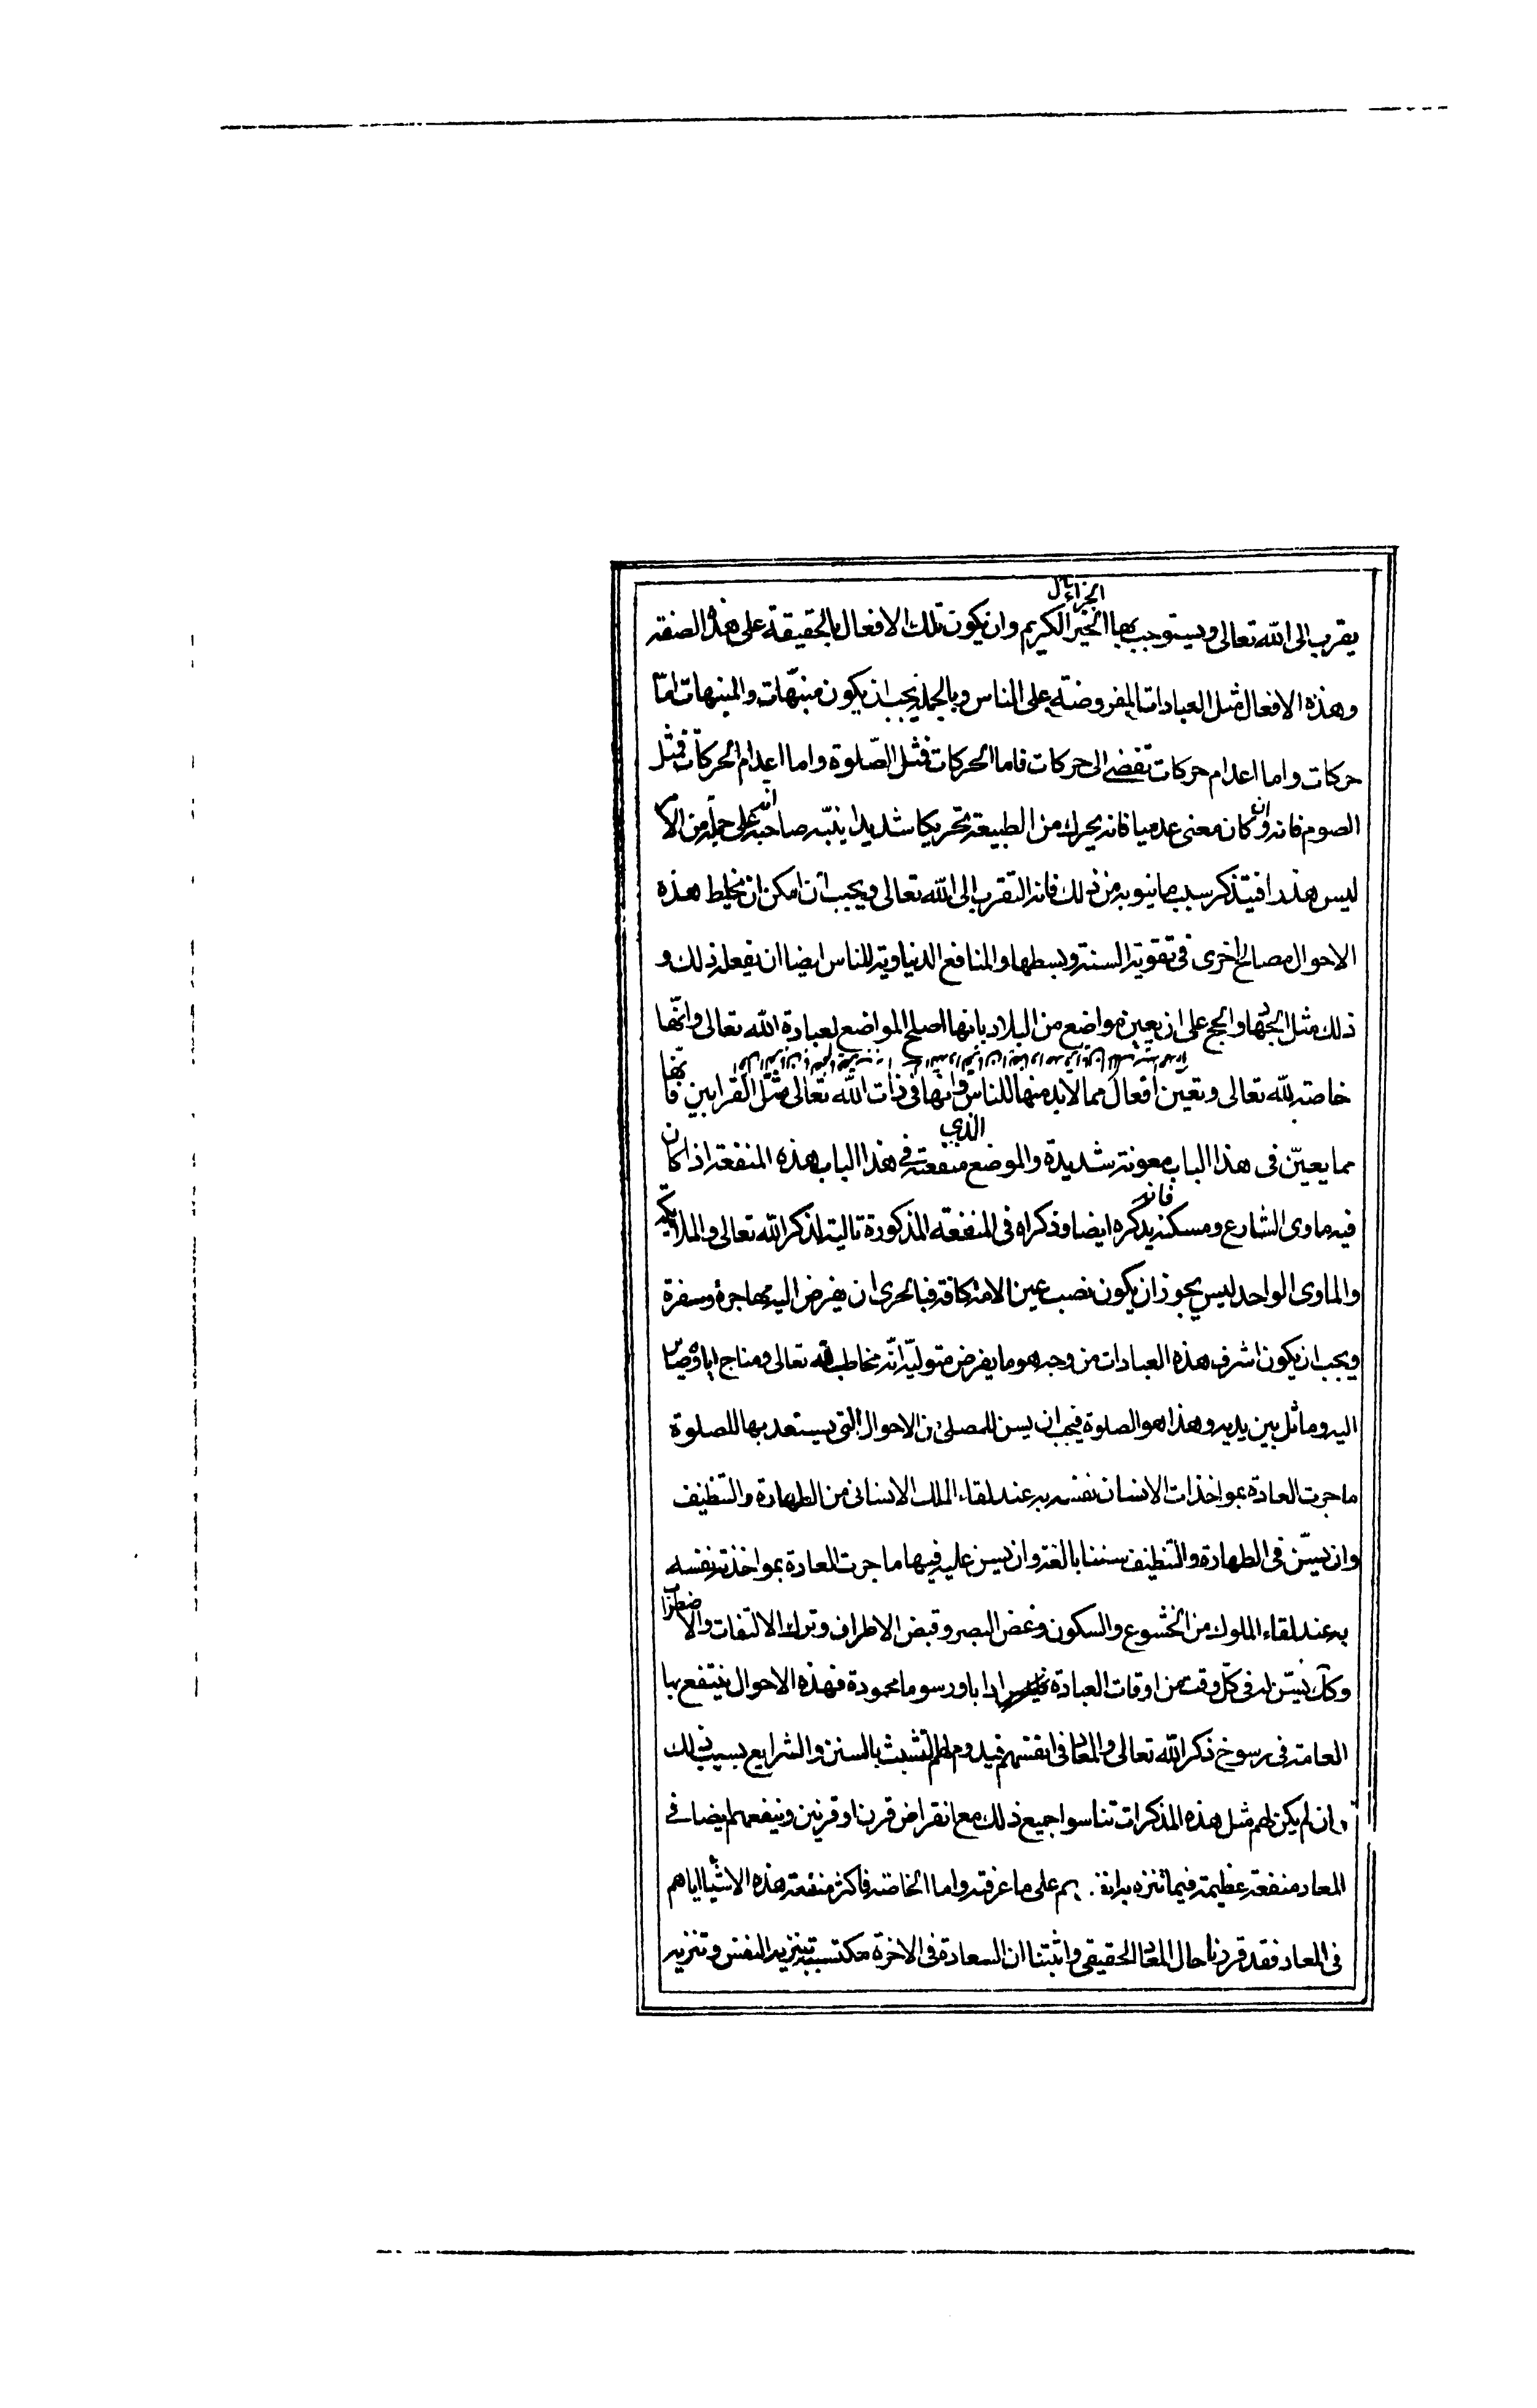 الجزاء بال
يقرب الى الله تعالى ويستوجب بها الخير الكريم وان يكون تلك الافعال بالحقيقة على هذه الصفة
وهذه الافعال مثل العبادات المفروضة على الناس وبالجملة يجب ان يكون منبهات والمنبهات امّا
حركات واما اعدام حركات تفضى الى حركات فاما الحركات فمثل الصّلوة واما اعدام الحركات فمثل
الصوم فانه وان كان معنى عدميا فانه يحرك من الطبيعة تحريكا شديدا ينبّه صاحبه انه على جملة من الامر
ليس هذرا فيتذكر سبب ما ينويه من ذلك فانه التقرب الى الله تعالى ويجب ان امكن ان يخلط هذه
الاحوال مصالح اخرى فى تقوية السنة وبسطها والمنافع الدنياوية للناس ايضا ان يفعل ذلك و
ذلك مثل الجهاد والحج على ان يعين مواضع من البلاد بانها اصلح المواضع لعبادة الله تعالى وانّها
خاصة لله تعالى وتعين افعال مما لابد منها للناس وانها فى ذات الله تعالى مثل القرابين فانّها
مما يعيّن فى هذا الباب معونة شديدة والموضع الذى منفعته فى هذا الباب هذه المنفعة اذا كان
فيه ماوى الشارع ومسكنه فانه يذكره ايضا وذكراه فى المنفعة المذكورة تالية لذكر الله تعالى والملائكة
والماوى الواحد ليس يجوز ان يكون نصب عين الامة كافة فبالحرى ان يفرض اليه مهاجرة وسفرة
ويجب ان يكون اشرف هذه العبادات من وجه هو ما يفرض متوليّه انّه مخاطب لله تعالى ومناج اياه وصاير
اليه وماثل بين يديه وهذا هو الصلوة فيجب ان يسن للمصلى من الاحوال التى يستعد بها للصلوة
ما جرت العادة بمواخذات الانسان نفسه به عند لقاء الملك الانسانى من الطهارة والتنظيف
وان يسّن فى الطهارة والتنظيف سننا بالغة وان يسن عليه فيها ما جرت العادة بمواخذته نفسه
به عند لقاء الملوك من الخشوع والسكون وغض البصر وقبض الاطراف وترك الالتفات والاضطراب
وكك يسّن له فى كلّ وقت من اوقات العبادة ادابا ورسوما محمودة فهذه الاحوال ينتفع بها
العامة فى رسوخ ذكر الله تعالى والمعاد فى انفسهم فيدوم لهم التشبث بالسنن والشرايع بسبب ذلك
وان لم يكن لهم مثل هذه المذكرات تناسوا جميع ذلك مع انقراض قرن او قرنين وينفعهم ايضا فى
المعاد منفعة عظيمة فيما تنزه به على ما عرفته واما الخاصة فاكثر منفعة هذه الاشياء اياهم
فى المعاد فقد قررنا حال المعاد الحقيقى واثبتنا ان السعادة فى الاخرة مكتسبة بتنزيه النفس وتنزيه